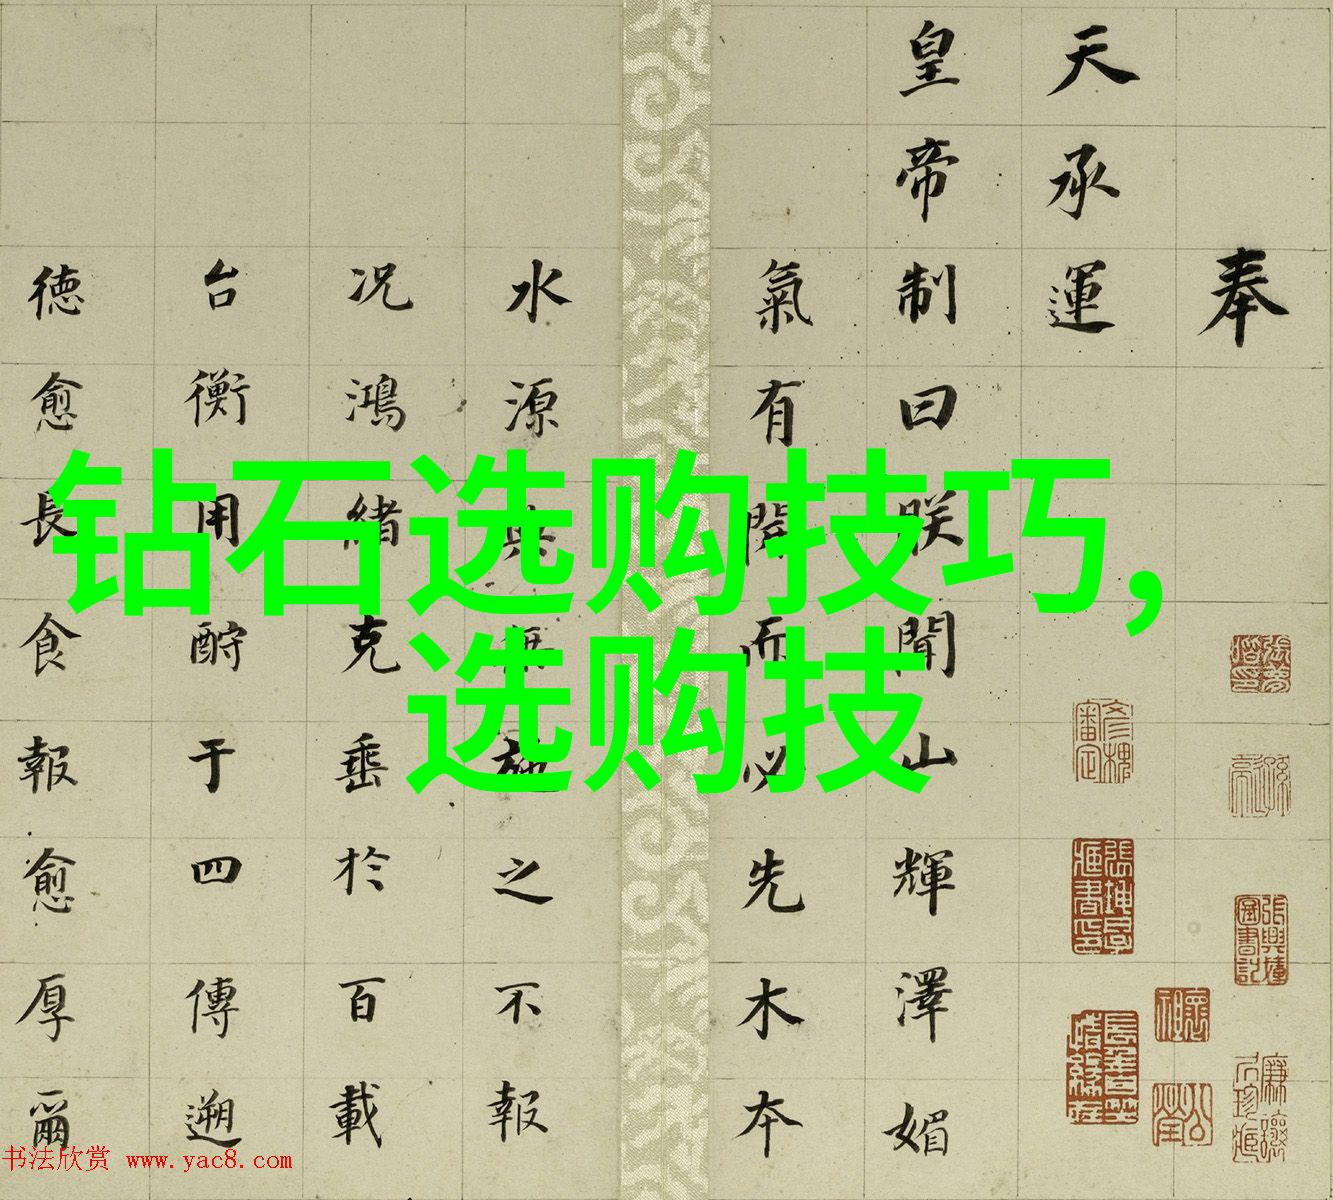 奉
天承運
皇帝制曰朕聞山輝澤媚
氣有開而必先木本
水源
之不報
况鴻緒克垂於百載
台衡用酹于四傳遡
德愈長食報愈厚爾
钻石选购技巧,
选购技
书法欣赏 www.yac8.com